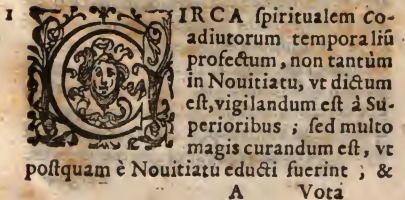 1 CIRCA ſpiritualem Co-
adiutorum temporaliũ
profectum, non tantùm
in Nouitiatu, vt dictum
eſt, vigilandum eſt à Su-
perioribus ; ſed multo
magis curandum eſt, vt
poſtquam è Nouitiatu educti fuerint ; &
A Vota